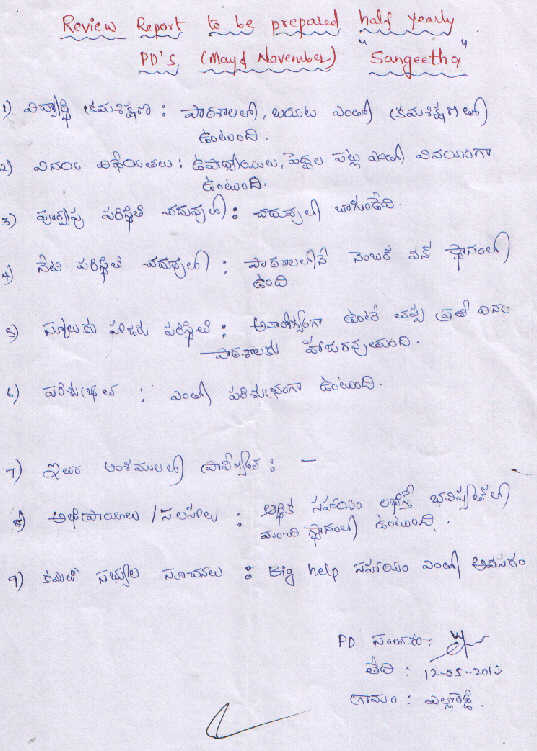 Review Report to be prepared half yearly
PD'S. (May & November) "Sangeetha"
1) విద్యార్థి క్రమశిక్షణ : పాఠశాలలో, బయట ఎంతో క్రమశిక్షణతో
ఉంటుంది.
2) వినయ విధేయతలు : ఉపాధ్యాయులు, పెద్దల పట్ల ఎంతో వినయంగా
ఉంటుంది.
3) పూర్వపు పరిస్థితి చదువులో : చదువులో బాగుండేది.
4) నేటి పరిస్థితి చదువులో : పాఠశాలలోనే నెంబర్ వన్ స్థానంలో
ఉంది
5) స్కూలుకు హాజరు పరిస్థితి : అనారోగ్యంగా ఉంటే తప్ప ప్రతి దినం
పాఠశాలకు హాజరవుతుంది.
6) పరిశుభ్రత : ఎంతో పరిశుభ్రంగా ఉంటుంది.
7) ఇతర అంశములలో ప్రావీణ్యత : –
8) అభిప్రాయాలు / సలహాలు : ఆర్థిక సహాయం లభిస్తే భవిష్యత్‌లో
మంచి స్థానంలో ఉంటుంది.
9) కమిటీ సభ్యుల సూచనలు : help సహాయం ఎంతో అవసరం
PD సంతకం :
తేది : 12-05-2012
గ్రామం :